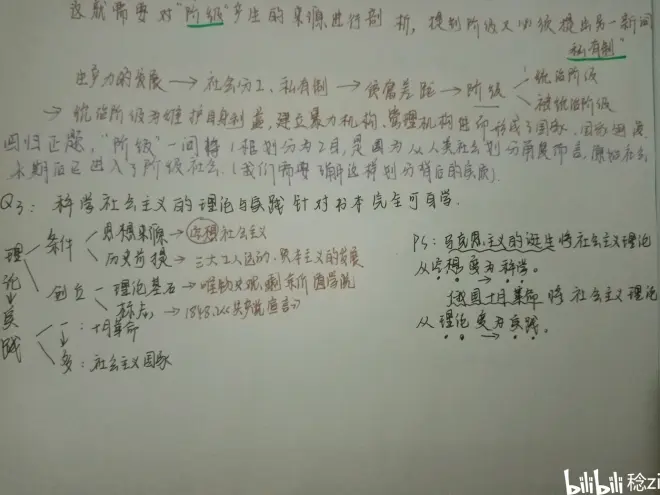 这就需要对"阶级"产生的来源进行剖析，提到阶级又必须提出另一新词
"私有制"
生产力的发展→社会分工、私有制→贫富差距→阶级
统治阶级
被统治阶级
→统治阶级为维护自身利益，建立暴力机构、管理机构
回归正题，"阶级"一词将1框划分为2月，是因为从人类社会划分角度而言，原始社会
末期后已进入了阶级社会.（我们需要了解这样划分背后的实质）
Q3：科学社会主义的理论与实践 针对书本完全可自学.
理论→实践
条件
思想来源→空想社会主义
历史前提→三大工人运动、资本主义的发展
创立
理论基石→唯物史观、剩余价值学说
标志→1848.2《共产党宣言》
一：十月革命
↓
多：社会主义国家
PS：马克思主义的诞生将社会主义理论
从空想变为科学。
俄国十月革命将社会主义理论
从理论变为实践。
bilibili 稔zi